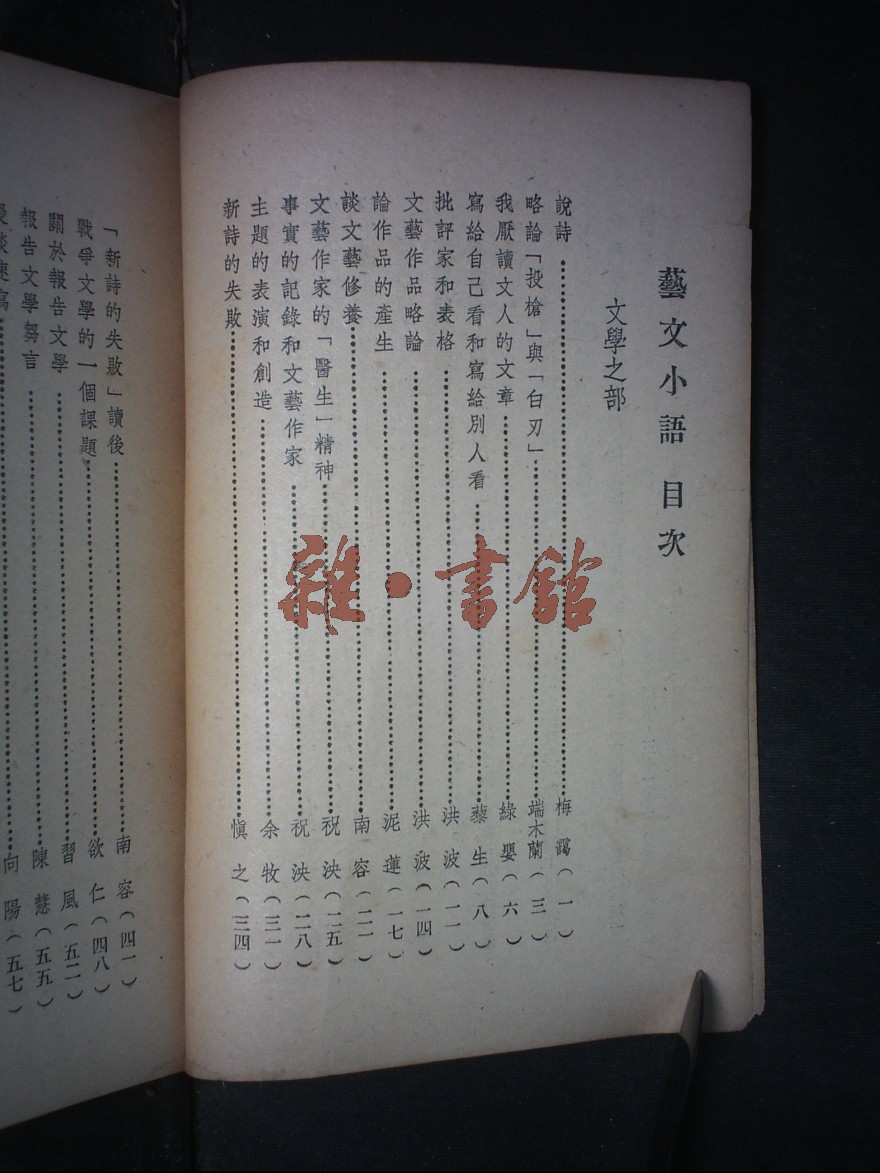 藝文小語 目次
文學之部
說詩…………梅靄（一）
略論「投槍」與「白刃」…………端木蘭（三）
我厭讀文人的文章…………綠嬰（六）
寫給自己看和寫給別人看…………藜生（八）
批評家和表格…………洪波（一一）
文藝作品略論…………洪波（一四）
論作品的產生…………泥蓮（一七）
談文藝修養…………南容（二一）
文藝作家的「醫生」精神…………祝泱（二五）
事實的記錄和文藝作家…………祝泱（二八）
主題的表演和創造…………余牧（三一）
新詩的失敗…………愼之（三四）
「新詩的失敗」讀後…………南容（四一）
戰爭文學的一個課題…………欲仁（四八）
關於報告文學…………習風（五二）
報告文學芻言…………陳慧（五五）
談速寫…………向陽（五七）
雜·書館